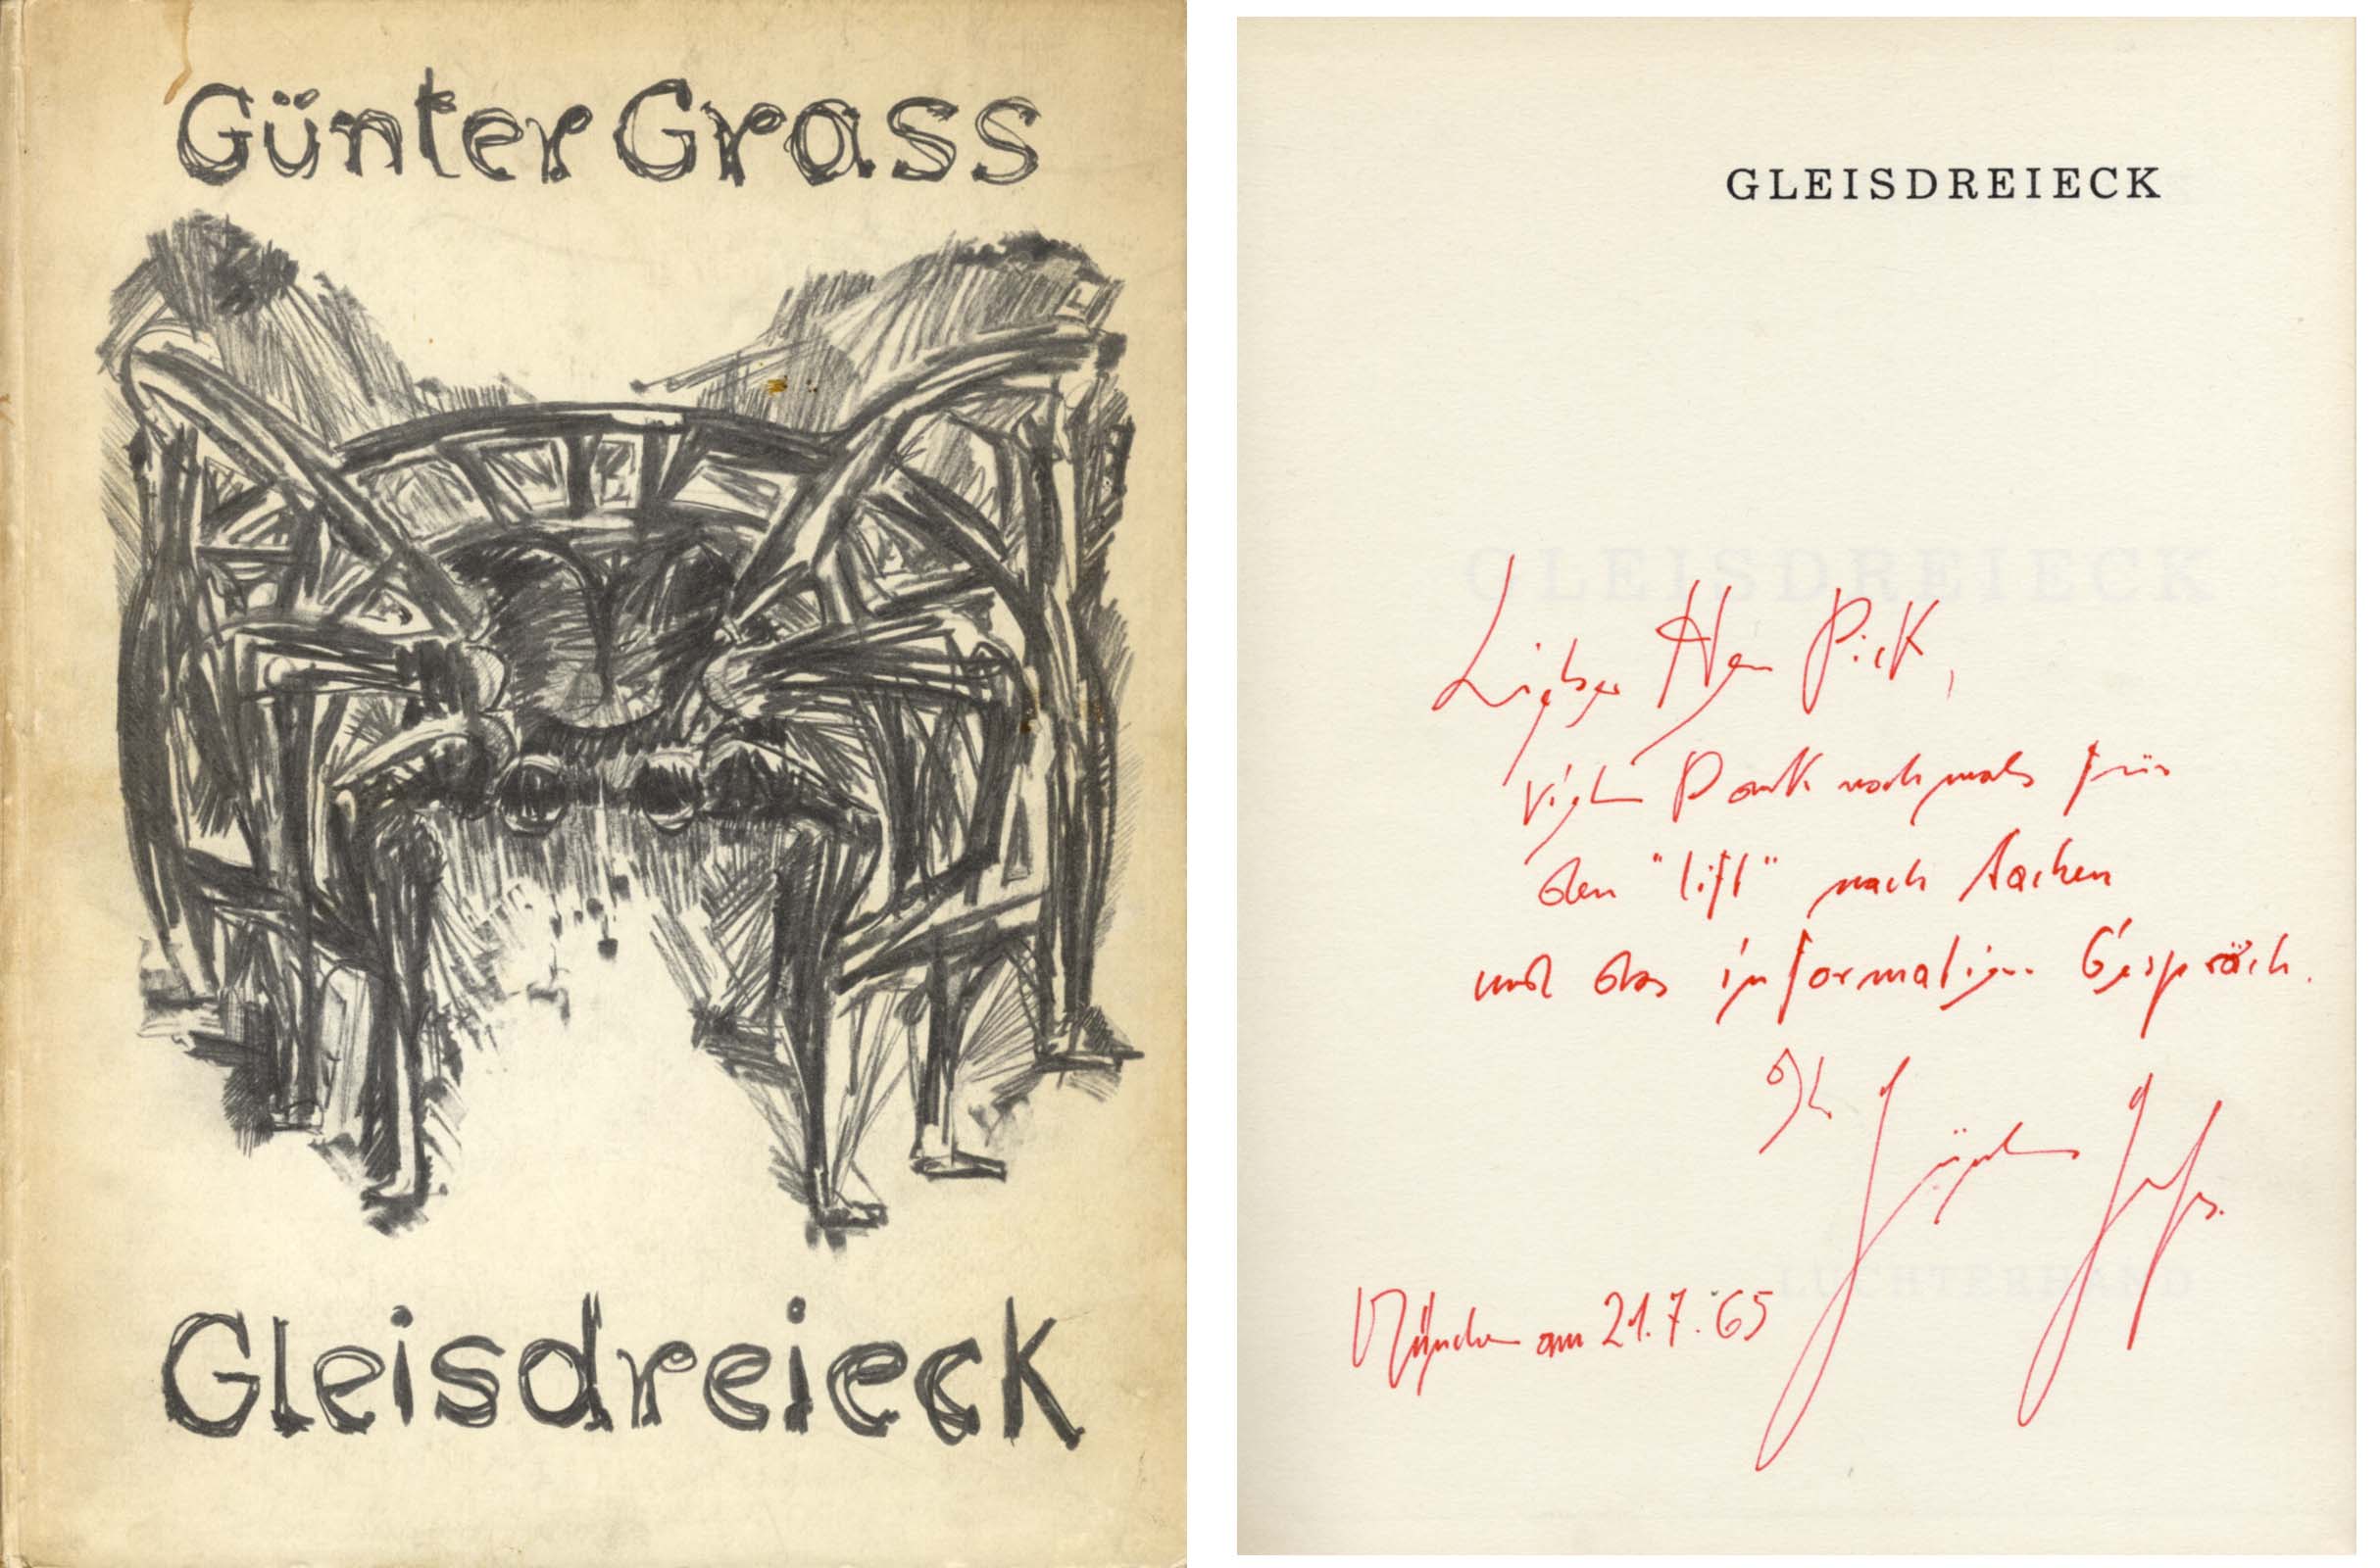 Günter Grass
Gleisdreieck
GLEISDREIECK
GLEISDREIECK
Lieber Herr Pick,
Vielen Dank nochmals für
den "lift" nach Aachen
und das informative Gespräch.
Ihr Günter Grass.
LUCHTERHAND
München am 21.7.'65